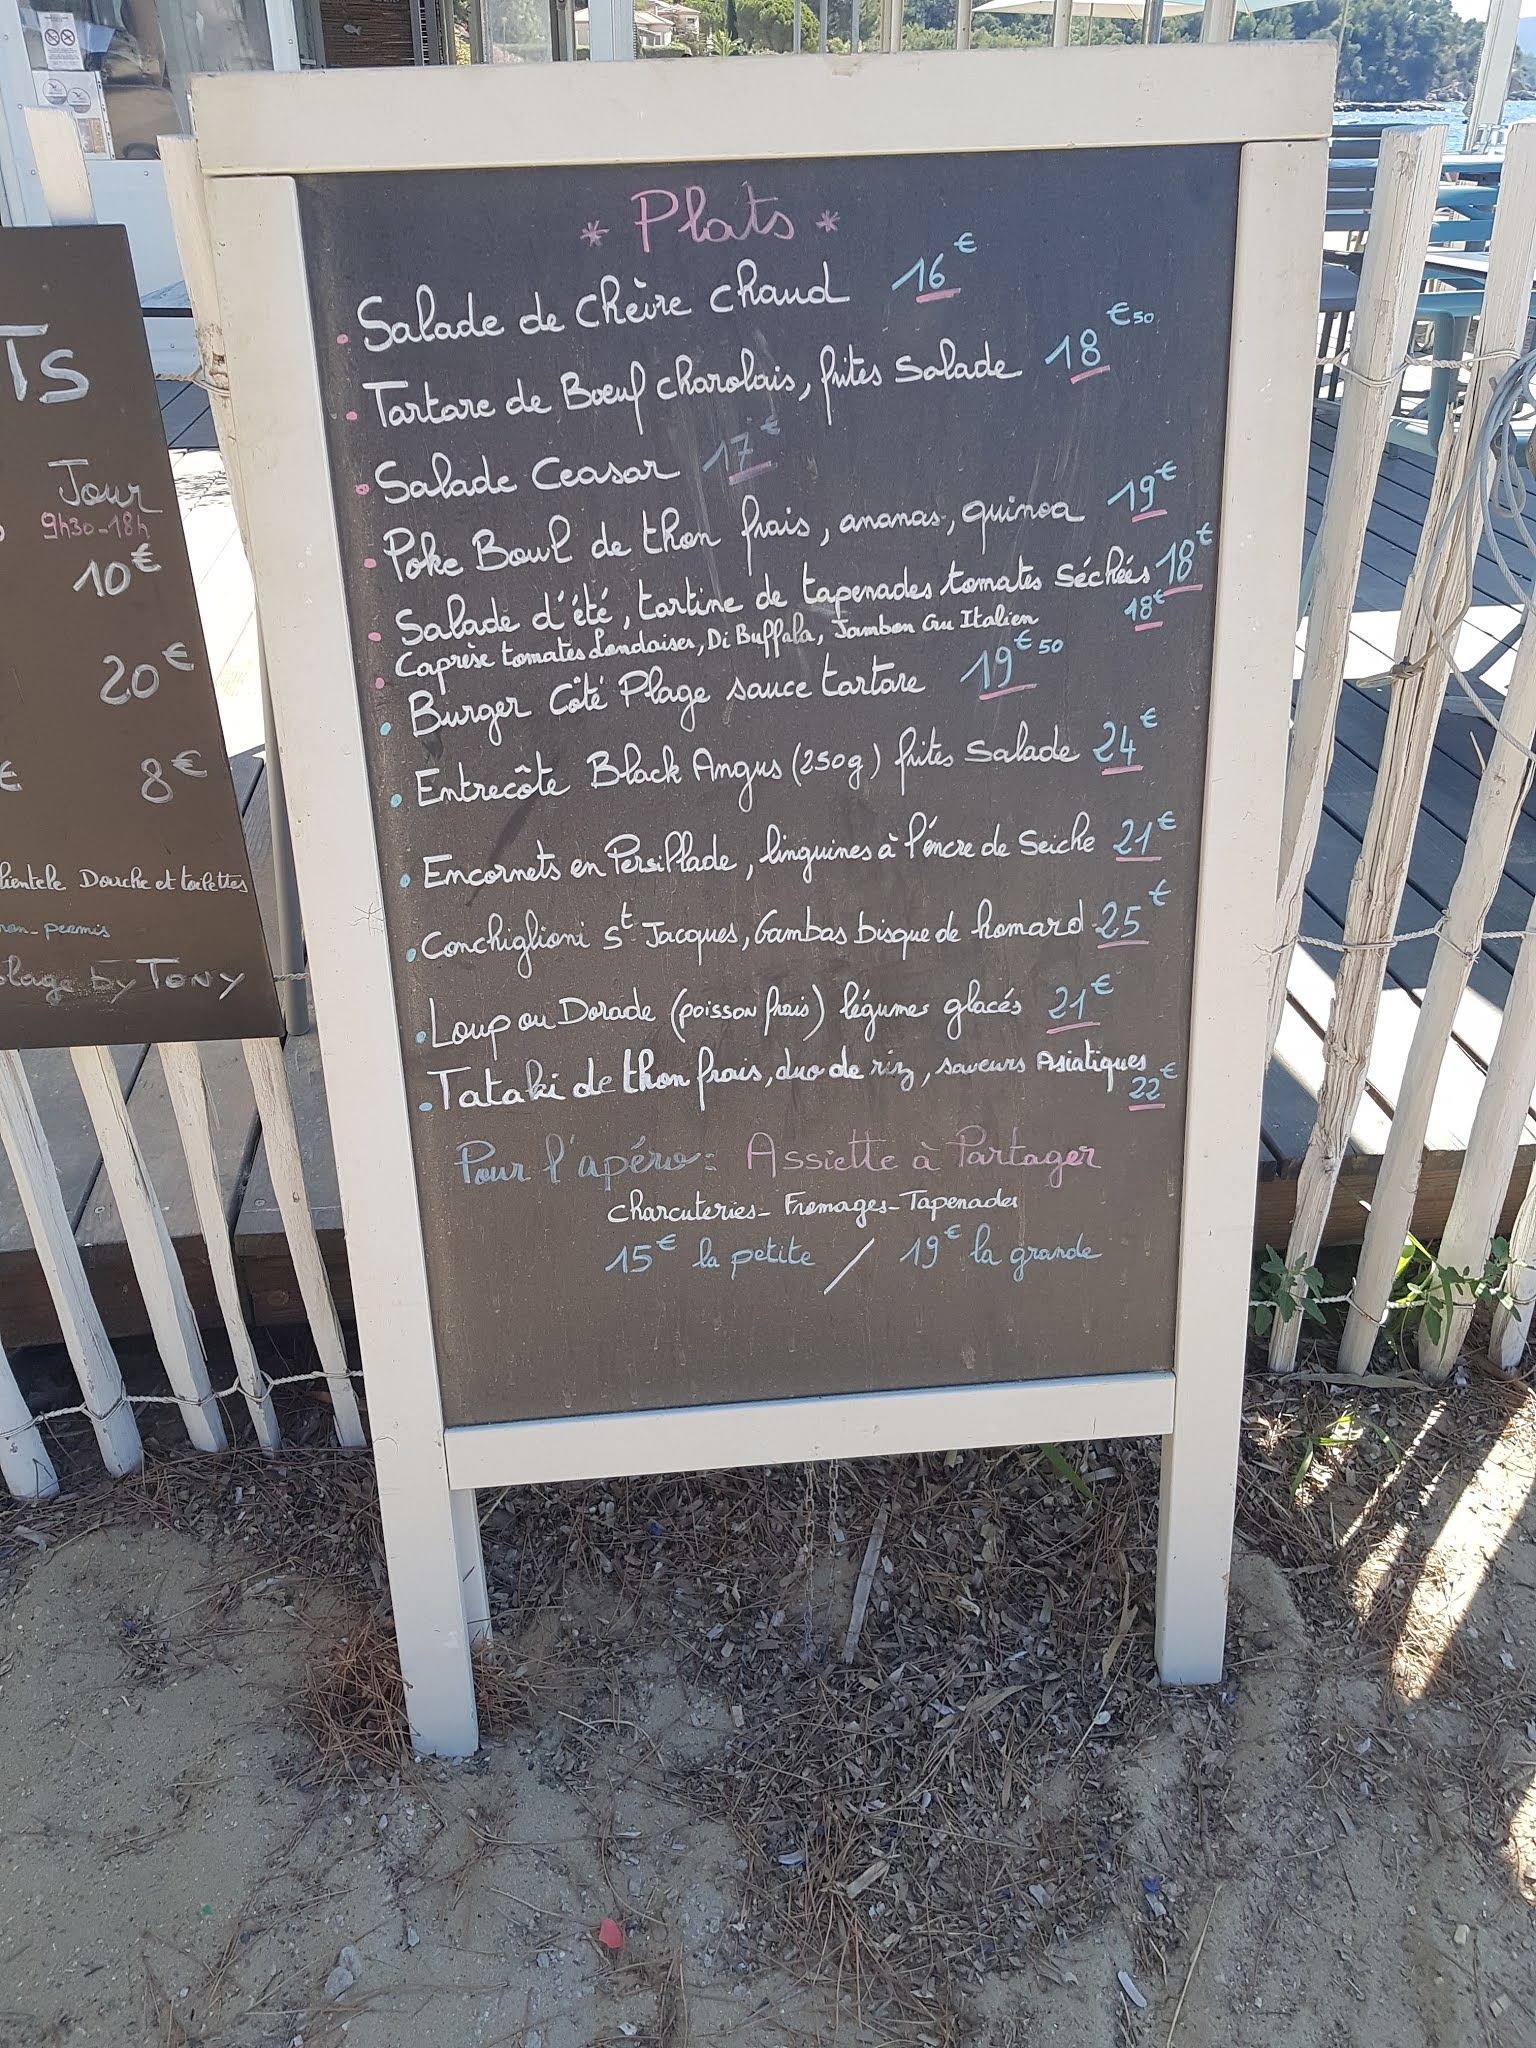 TS
Jour
9h30-18h
10€
20€
€ 8€
Douche et toilettes
permis
by TONY
* Plats *
Salade de chèvre chaud 16€
Tartare de Bœuf charolais, frites Salade 18€50
Salade Ceasar 17€
Poke Bowl de thon frais, ananas, quinoa 19€
Salade d'été, tartine de tapenades tomates Séchées 18€
Caprèse tomates Landaises, Di Buffala, Jambon Cru Italien 18€
Burger Côté Plage sauce tartare 19€50
Entrecôte Black Angus (250g) frites Salade 24€
Encornets en Persillade, linguines à l'encre de Seiche 21€
Conchiglioni St Jacques, Gambas bisque de homard 25€
Loup ou Dorade (poisson frais) légumes glacés 21€
Tataki de thon frais, duo de riz, saveurs Asiatiques
22€
Pour l'apéro: Assiette à Partager
charcuteries - Fromages - Tapenades
15€ la petite / 19€ la grande